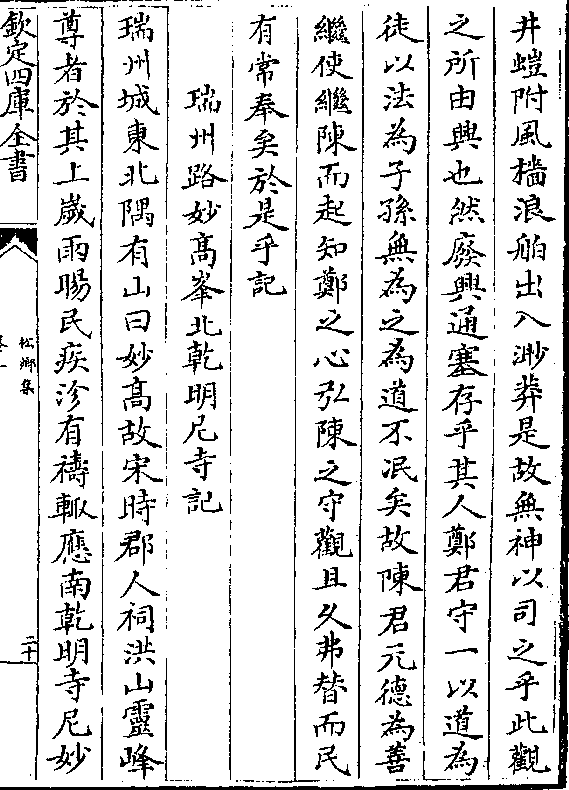 井螘附風檣浪舶出入渺莽是故無神以司之乎此觀
之所由興也然廢興通塞存乎其人鄭君守一以道為
徒以法為子孫無為之為道不泯矣故陳君元德為善
繼使繼陳而起知鄭之心弘陳之守觀且久弗替而民
有常奉矣於是乎記
瑞州路妙高峯北乾明尼寺記
瑞州城東北隅有山曰妙高故宋時郡人祠洪山靈峰
尊者於其上歲雨暘民疾沴有禱輒應南乾明寺尼妙
欽定四庫全書
松鄉集
二十